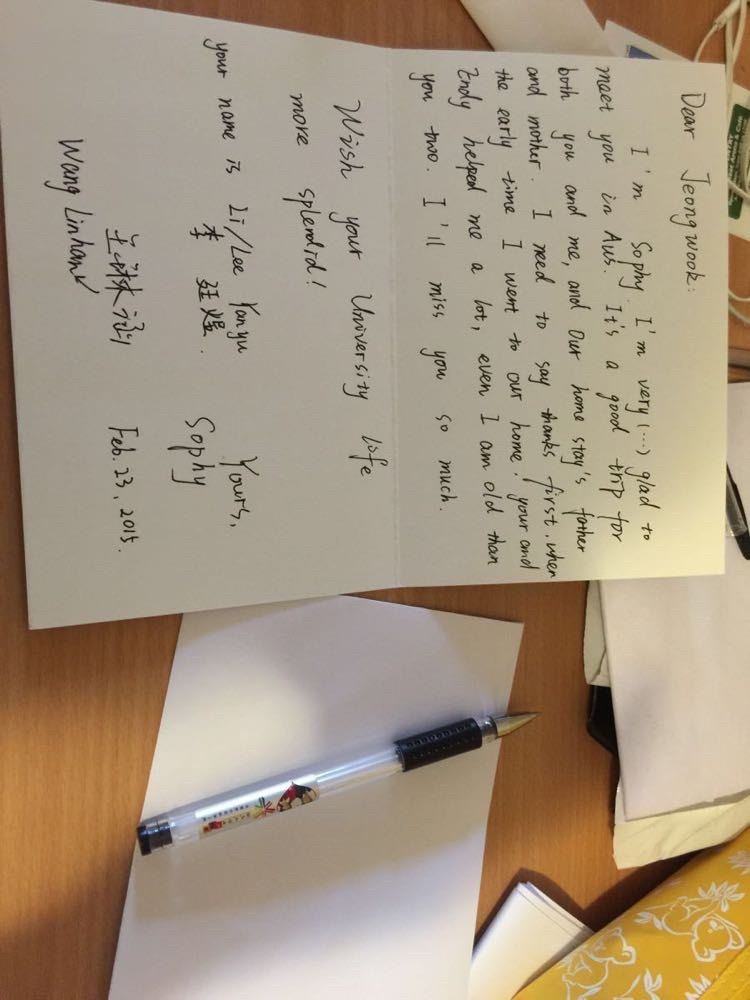 Dear Jeongwook:
I'm Sophy. I'm very (...) glad to
meet you in Aus. It's a good trip for
both you and me, and our home stay's father
and mother. I need to say thanks first. when
the early time I went to our home, your and
Endy helped me a lot, even I am old than
you two. I'll miss you so much.
Wish your University life
more splendid!
your name is Li/Lee Yanyu
李
Yours,
Sophy
Wang Linhan
Feb. 23, 2015.